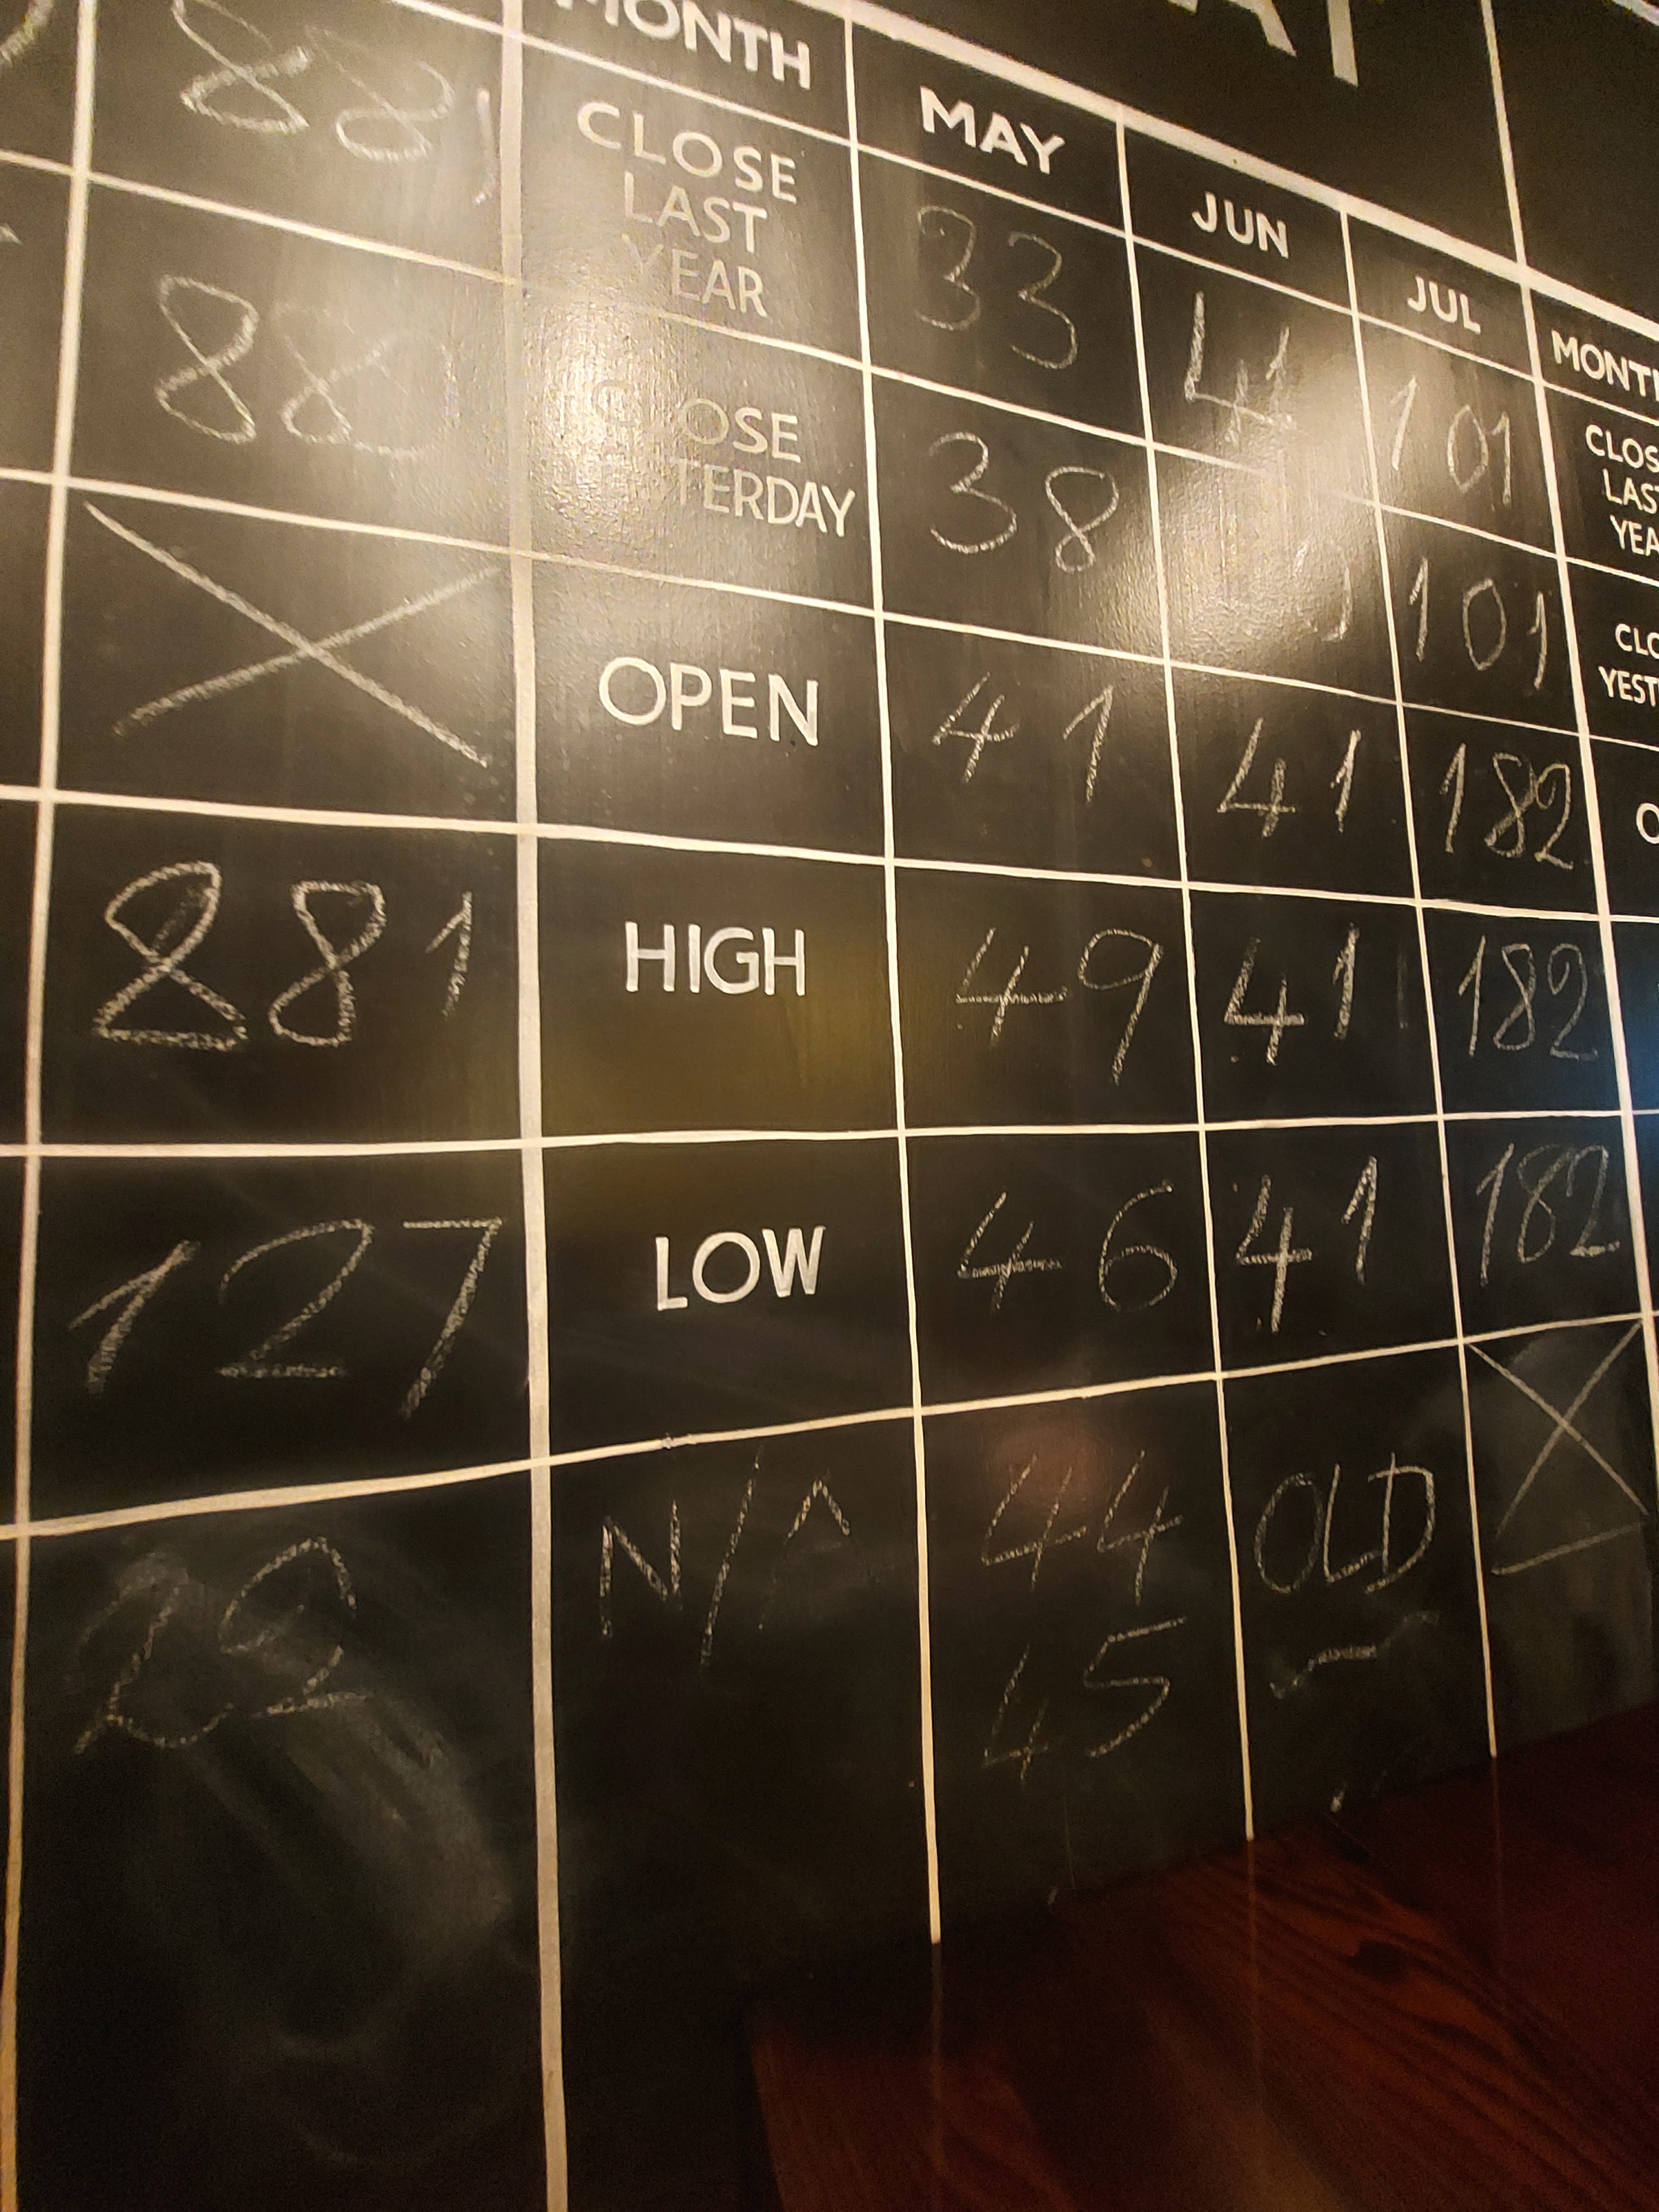 MONTH MAY JUN JUL MONTH
881 CLOSE LAST YEAR 33 41 101 CLOS LAST YEA
88 CLOSE YESTERDAY 38 101 CLO YEST
X OPEN 41 41 182 O
881 HIGH 49 41 182
127 LOW 46 41 182
N/A 44 OLD X
45